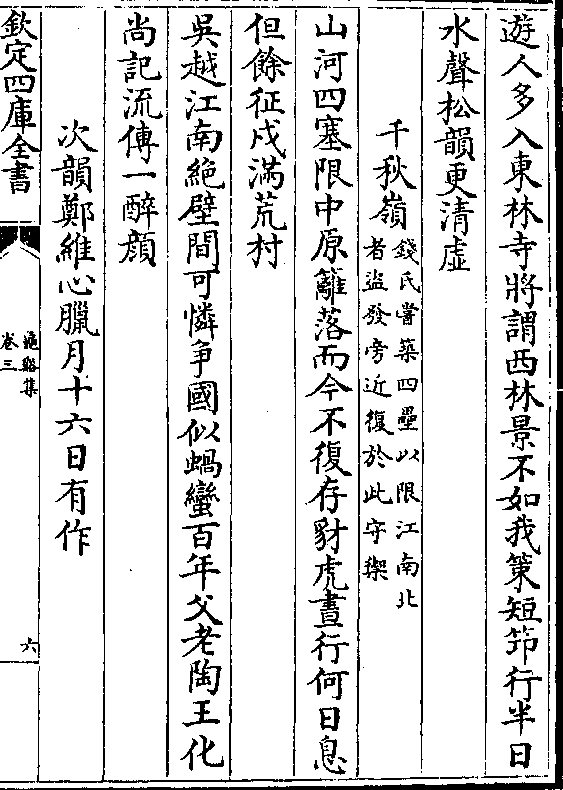 遊人多入東林寺將謂西林景不如我策短笻行半日
水聲松韻更清虛
千秋嶺錢氏嘗築四壘以限江南北
者盜發旁近復於此守禦
山河四塞限中原籬落而今不復存豺虎晝行何日息
但餘征戍滿荒村
吳越江南絶壁間可憐爭國似蝸蠻百年父老陶王化
尚記流傳一醉顔
次韻鄭維心臘月十六日有作
欽定四庫全書
龜谿集
卷三
六